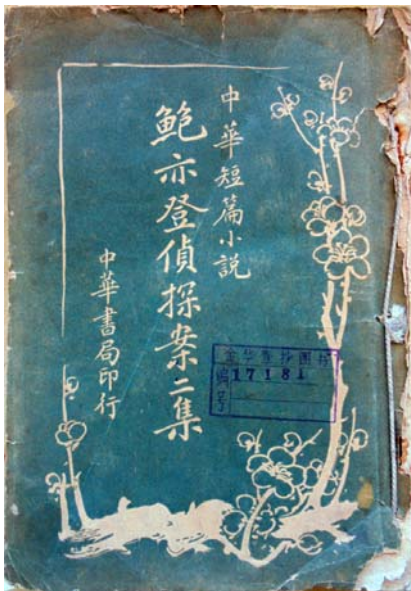 中華短篇小説
鮑亦登偵探案二集
中華書局印行
编号
17181